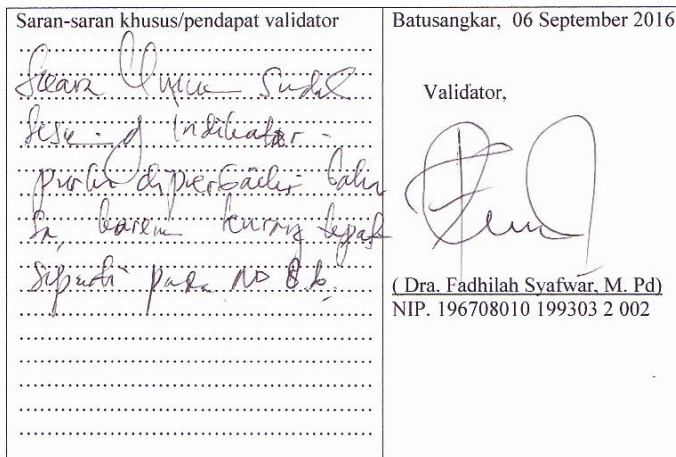 Saran-saran khusus/pendapat validator
Secara Umum Sudah
Sesu - d Indikator -
perlu diperbaiki baha
sa, karena kurang tepat
seperti pada No 8 b.
Batusangkar, 06 September 2016
Validator,
( Dra. Fadhilah Syafwar, M. Pd)
NIP. 196708010 199303 2 002